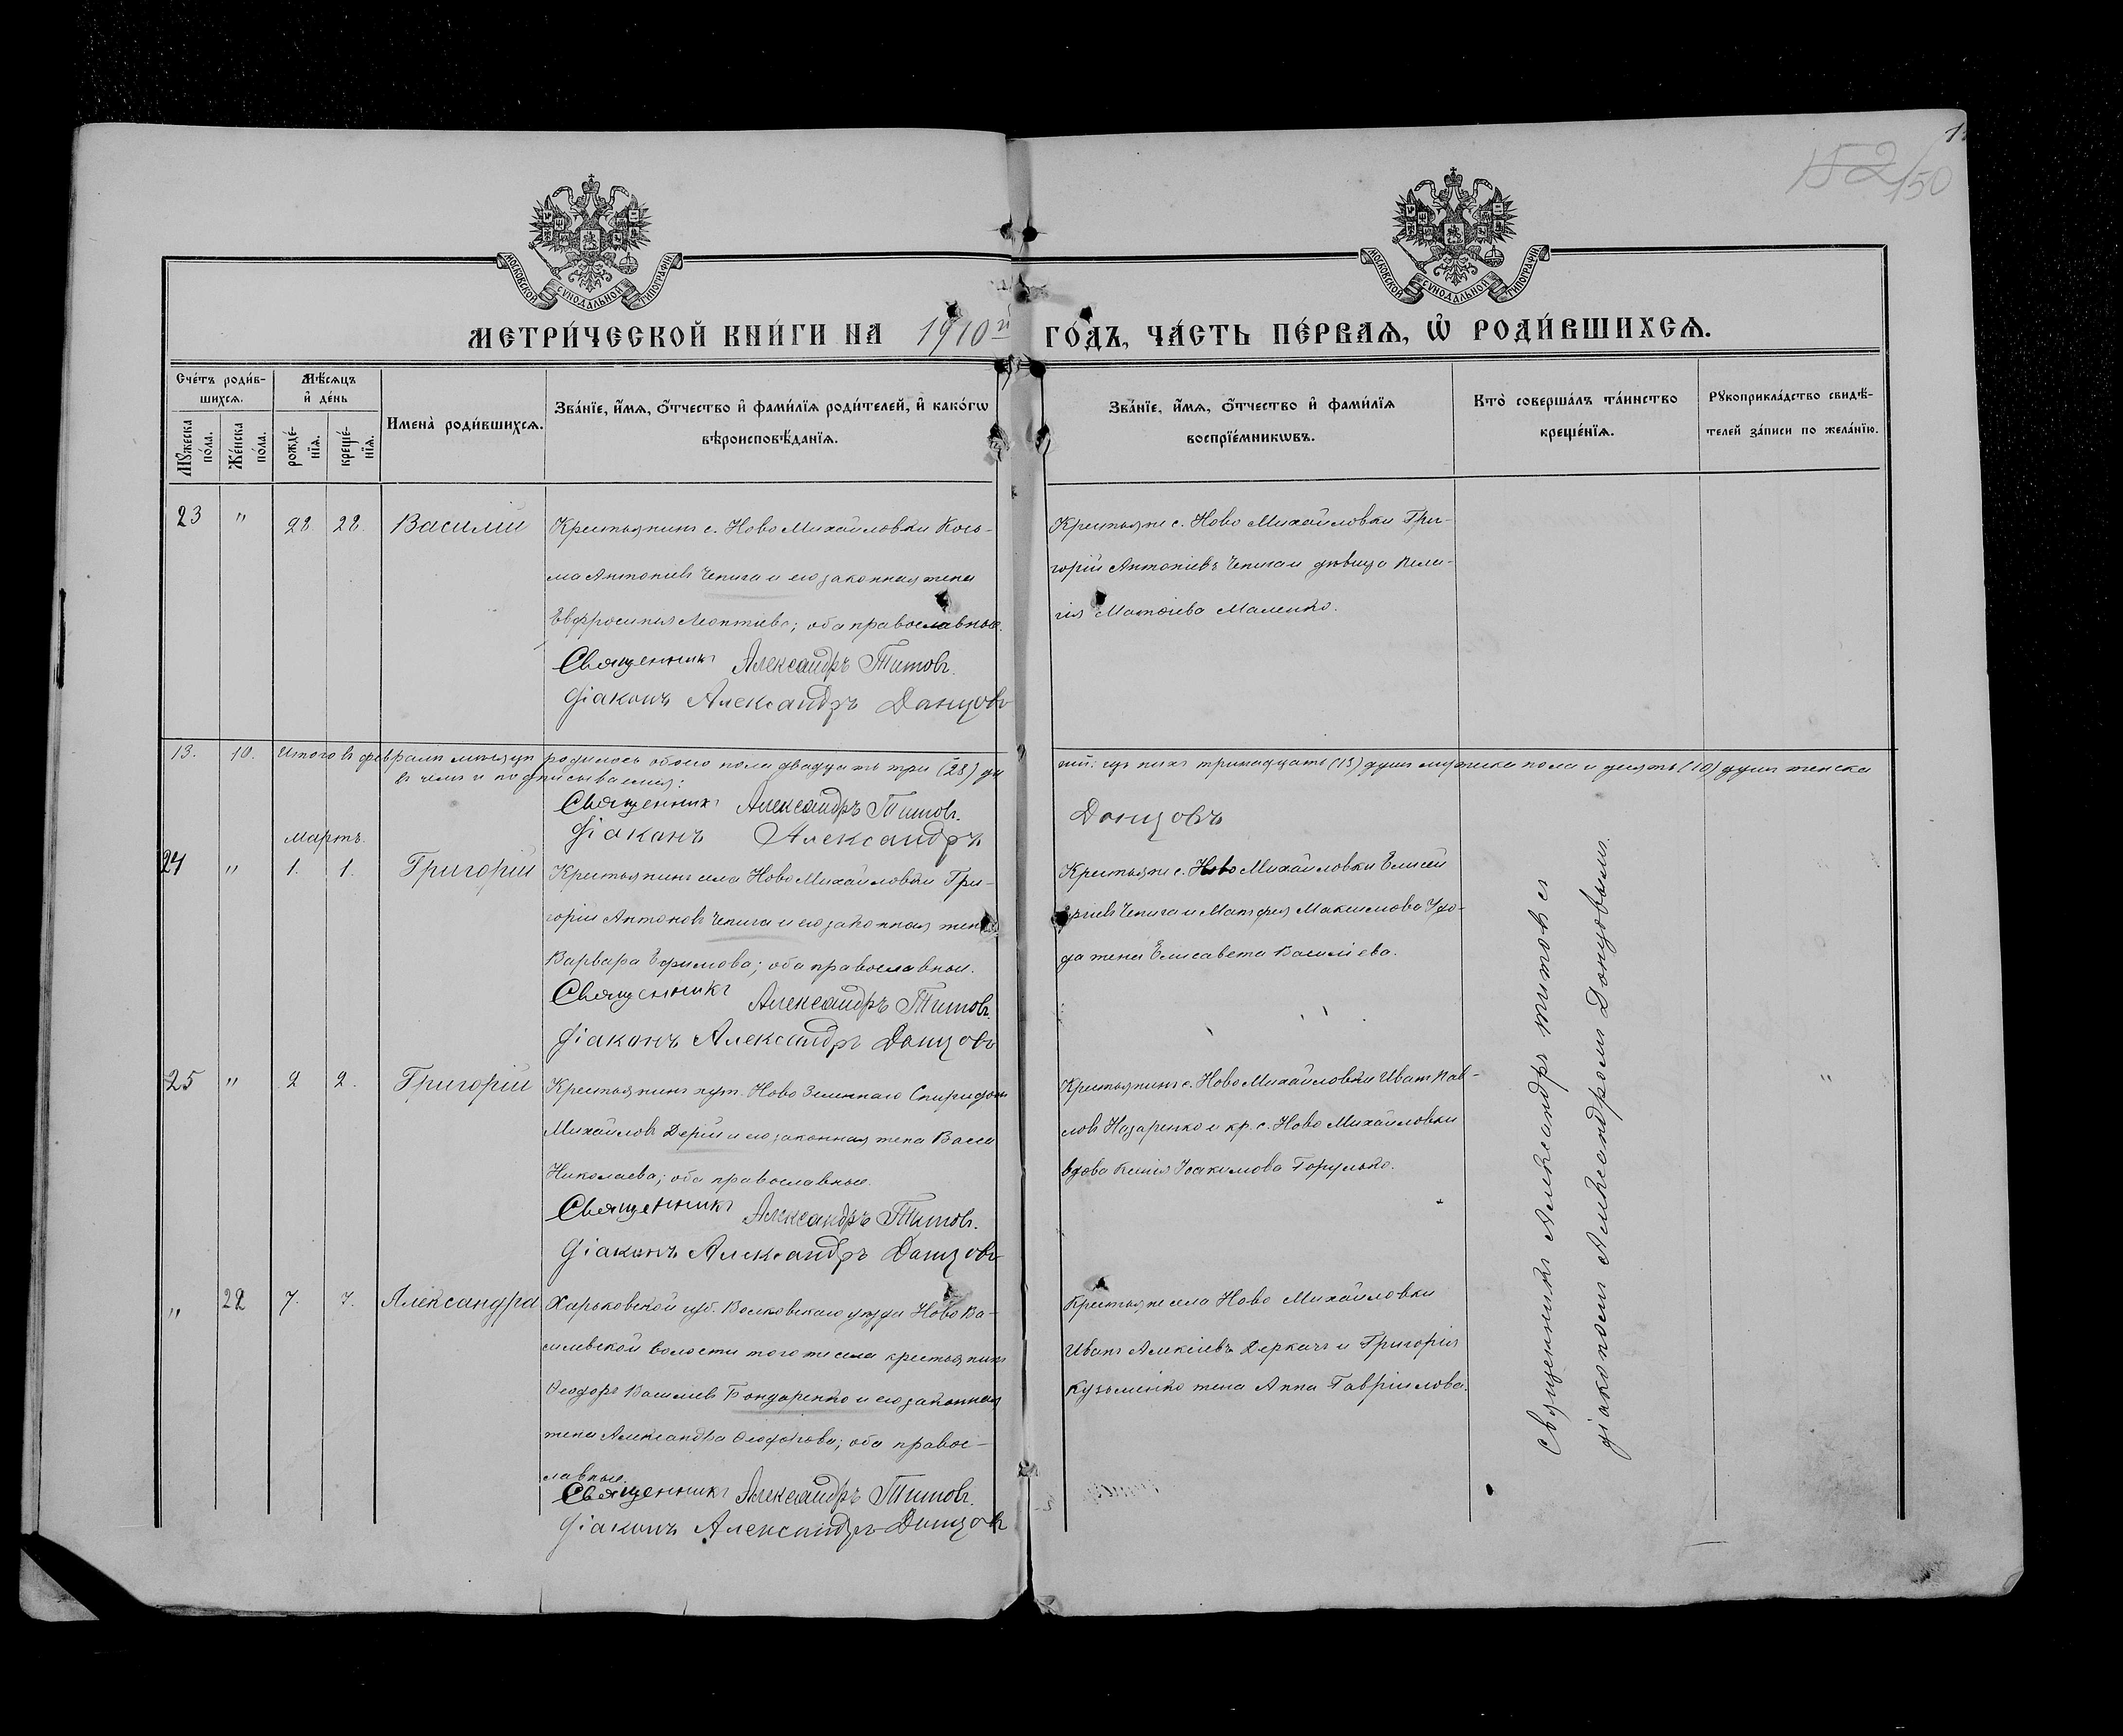 152/150
МОСКОВСКОЙ СѴНОДАЛЬНОЙ ТИПОГРАФІИ
МОСКОВСКОЙ СѴНОДАЛЬНОЙ ТИПОГРАФІИ
МЕТРИ́ЧЕСКОЙ КНИ́ГИ НА 1910й ГО́ДЪ, ЧА́СТЬ ПЕ́РВАѦ, Ѡ҆ РОДИ́ВШИХСѦ.
Сче́тъ роди́в-
шихсѧ.
Мꙋ́жеска по́ла.
Же́нска по́ла.
Мѣ́сѧцъ
и҆ де́нь
рожде́-
нїѧ.
креще́-
нїѧ.
Имена̀ роди́вшихсѧ.
Зва́нїе, и҆́мѧ, ѻ҆́тчество и҆ фами́лїѧ роди́телей, и҆ како́гѡ
вѣроисповѣ́данїѧ.
Зва́нїе, и҆́мѧ, ѻ҆́тчество и҆ фами́лїѧ
воспрїе́мникѡвъ.
Кто̀ соверша́лъ та́инство
креще́нїѧ.
Рꙋкоприкла́дство свидѣ́-
телей за́писи по жела́нїю.
23 " 22. 22. Василій
Крестьянинъ с. Ново Михайловки Кось-
ма Антоніевъ Чепига и его законная жена
Евфросинія Леонтіева; оба православные.
Священникъ Александръ Титовъ.
Діаконъ Александръ Данцовъ
Крестьяне с. Ново Михайловки Гри-
горій Антоніевъ Чепига и дѣвица Пела-
гія Матѳіева Маленко.
13. 10. Итого въ февралѣ мѣсяцѣ родилось обоего пола двадцать три (23) ду
шй: изъ нихъ тринадцать (13) душъ мужска пола и десять (10) душъ женска
въ чемъ и подписываемся:
Священникъ Александръ Титовъ.
Діаконъ Александръ Данцовъ
Мартъ.
24 " 1. 1. Григорій
Крестьянинъ села Ново Михайловки Гри-
горій Антоновъ Чепига и его законная жена
Варвара Ефимова; оба православные.
Священникъ Александръ Титовъ.
Діаконъ Александръ Данцовъ
Крестьяне с. Ново Михайловки Елисей
Чепига и Максимова
да жена Елисавета Василіева.
25 " 2 2. Григорій
Крестьянинъ хут. Ново Зеленнаго Спиридонъ
Михайловъ Дерій и его законная жена Васса
Николаева; оба православные.
Священникъ Александръ Титовъ.
Діаконъ Александръ Данцовъ
Крестьянинъ с. Ново Михайловки Иванъ Пав-
ловъ Назаренко и кр. с. Ново Михайловки
вдова Ксенія Іоакимова Горулько.
"
" 22 7. 7. Александра
Харьковской губ. Волковскаго уѣзда Ново Ва-
силевской волости того же села крестьянинъ
Ѳеодоръ Василіевъ Бондаренко и его законная
жена Александра; оба правос-
лавные.
Священникъ Александръ Титовъ.
Діаконъ Александръ Данцовъ
Крестьяне села Ново Михайловки
Иванъ Алексіевъ Деркачъ и Григорія
Кузьменко жена Анна Гавріилова.
Священникъ Александръ Титовъ съ
діакономъ Александромъ Донцовымъ.